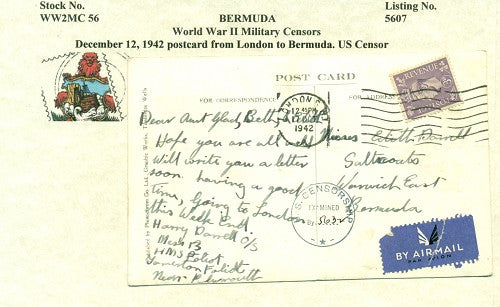 Stock No.
WW2MC 56
BERMUDA
World War II Military Censors
December 12, 1942 postcard from London to Bermuda. US Censor
Listing No.
5607
POST CARD
FOR CORRESPONDENCE
FOR ADDRESS
LONDON
12
1942
REVENUE
Dear Aunt Glad, Betty
Hope you are all well
Will write you a letter
soon. having a good
time, going to London
this Week End
Harry Darrell O/S
Mess B
HMS
Near Plymouth
Darrell
Warwick East
Bermuda
U.S. CENSORSHIP
EXAMINED
BY
BY AIR MAIL
PAR AVION